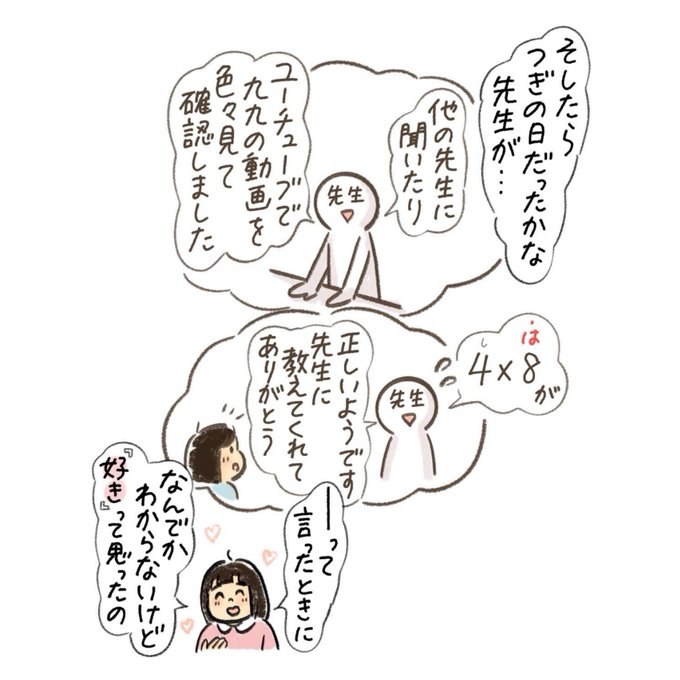 そしたら
つぎの日だったかな
先生が…
他の先生に
聞いたり
ユーチューブで
九九の動画を
色々見て
確認しました
先生
は
4×8が
先生
正しいようです
先生に
教えてくれて
ありがとう
――って
言ったときに
なんでか
わからないけど
『好き』って思ったの